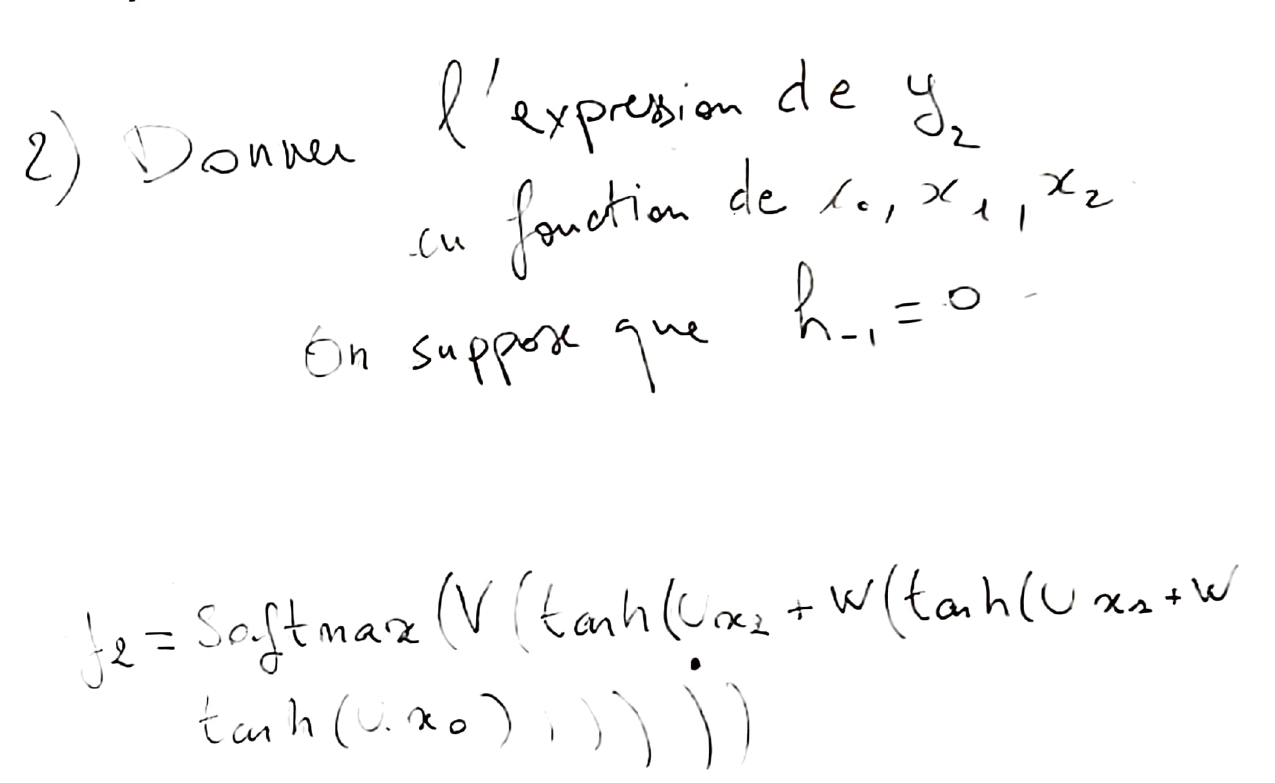 2) Donner l'expression de y₂
en fonction de x₀, x₁, x₂
On suppose que h₋₁ = 0
y₂ = Softmax (V (tanh(U x₂ + W (tanh(U x₁ + W
tanh (U. x₀) ) ) ) ) )